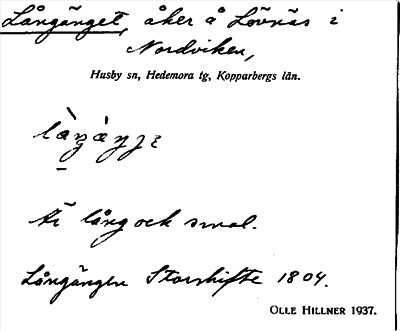 Långänget, åker å Lövnäs i
Nordviken,
Husby sn, Hedemora tg, Kopparbergs län.
Är lång och smal.
Långängen Storskifte 1804.
OLLE HILLNER 1937.